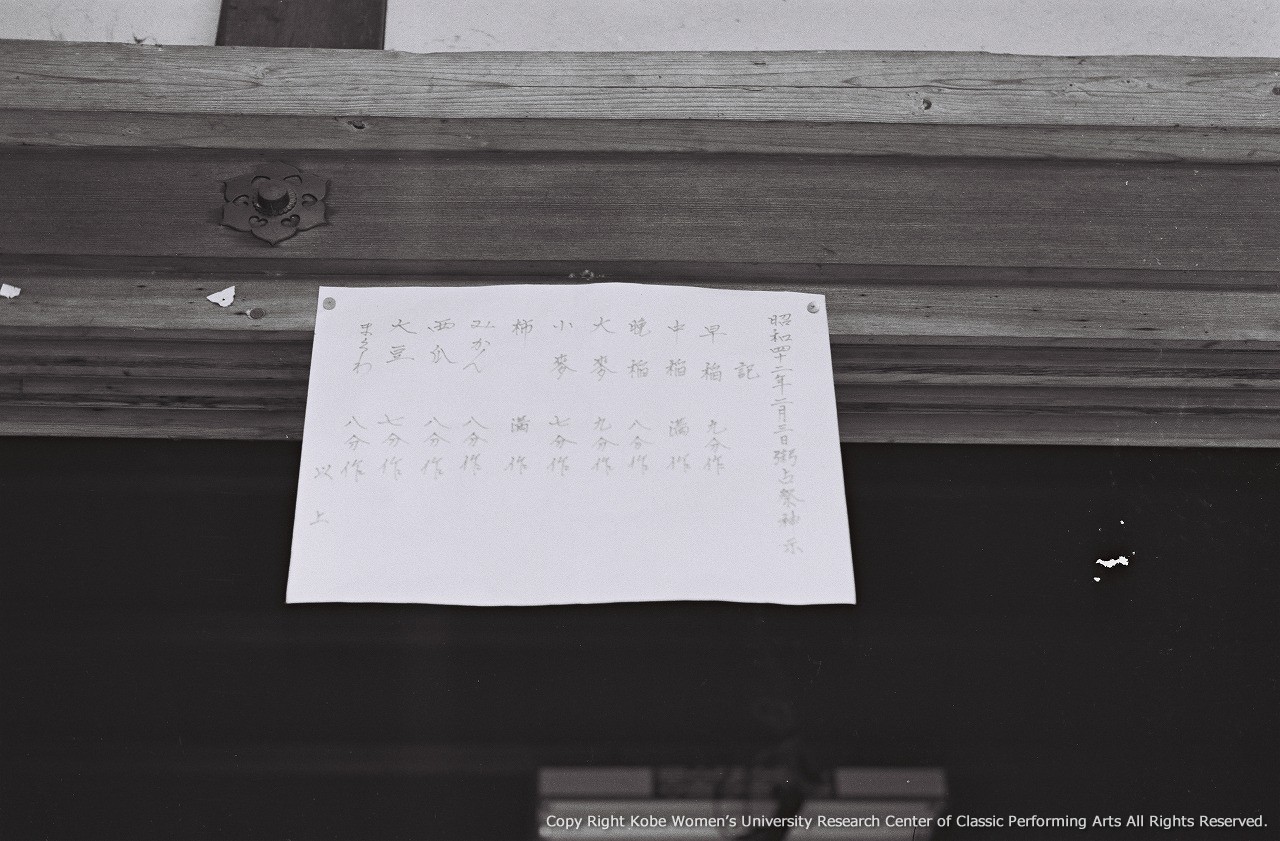 昭和四十二年二月三日粥占祭神示
記
早稲 九分作
中稲 満作
晩稲 八分作
大麥 九分作
小麥 七分作
柿 満作
みかん 八分作
西瓜 八分作
大豆 七分作
八分作
以上
Copy Right Kobe Women's University Research Center of Classic Performing Arts All Rights Reserved.